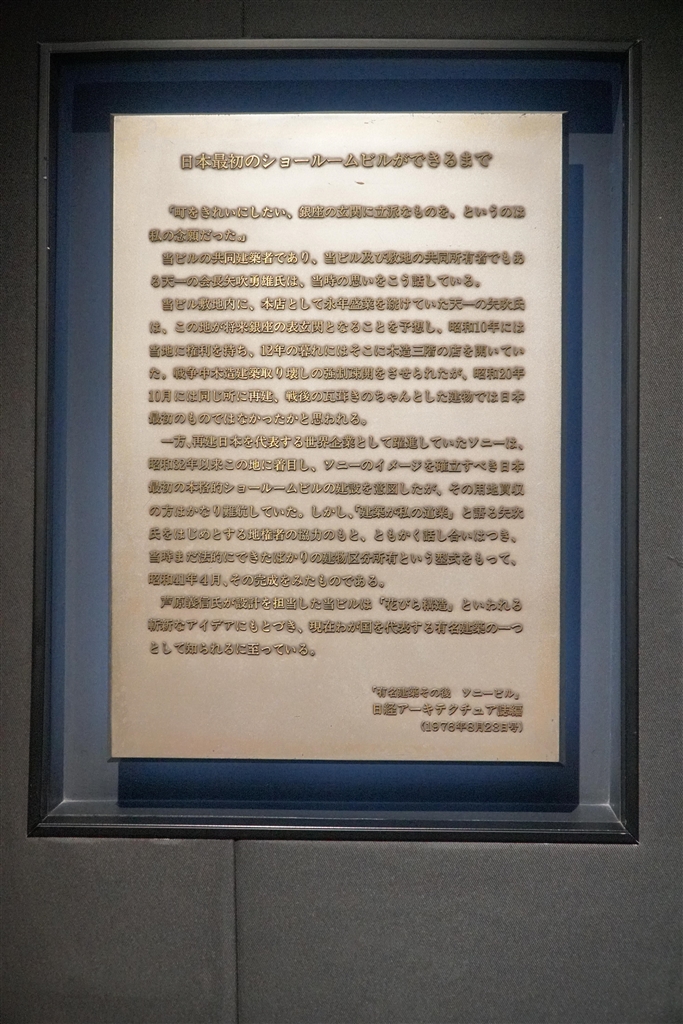 日本最初のショールームビルができるまで
「町をきれいにしたい、銀座の玄関に立派なものを、というのは
私の念願だった。」
当ビルの共同建築者であり、当ビル及び敷地の共同所有者でもあ
る天一の会長矢吹勇雄氏は、当時の思いをこう話している。
当ビル敷地内に、本店として永年盛業を続けていた天一の矢吹氏
は、この地が将来銀座の表玄関となることを予想し、昭和10年には
当地に権利を持ち、12年の暮れにはそこに木造三階の店を開いてい
た。戦争中木造建築取り壊しの強制疎開をさせられたが、昭和20年
10月には同じ所に再建、戦後の瓦葺きのちゃんとした建物では日本
最初のものではなかったかと思われる。
一方、再建日本を代表する世界企業として躍進していたソニーは、
昭和32年以来この地に着目し、ソニーのイメージを確立すべき日本
最初の本格的ショールームビルの建設を意図したが、その用地買収
の方はかなり難航していた。しかし、「建築が私の道楽」と語る矢吹
氏をはじめとする地権者の協力のもと、ともかく話し合いはつき、
当時まだ法的にできたばかりの建物区分所有という型式をもって、
昭和41年4月、その完成をみたものである。
芦原義信氏が設計を担当した当ビルは「花びら構造」といわれる
斬新なアイデアにもとづき、現在わが国を代表する有名建築の一つ
として知られるに至っている。
「有名建築その後　ソニービル」
日経アーキテクチュア誌編
(1978年8月28日号)